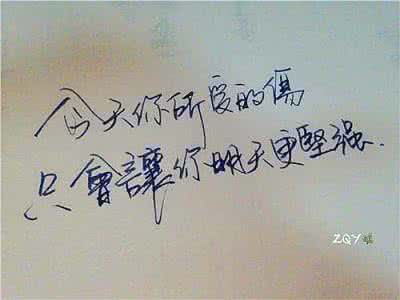 今天你所受的傷
只會讓你明天更堅强.
ZQY